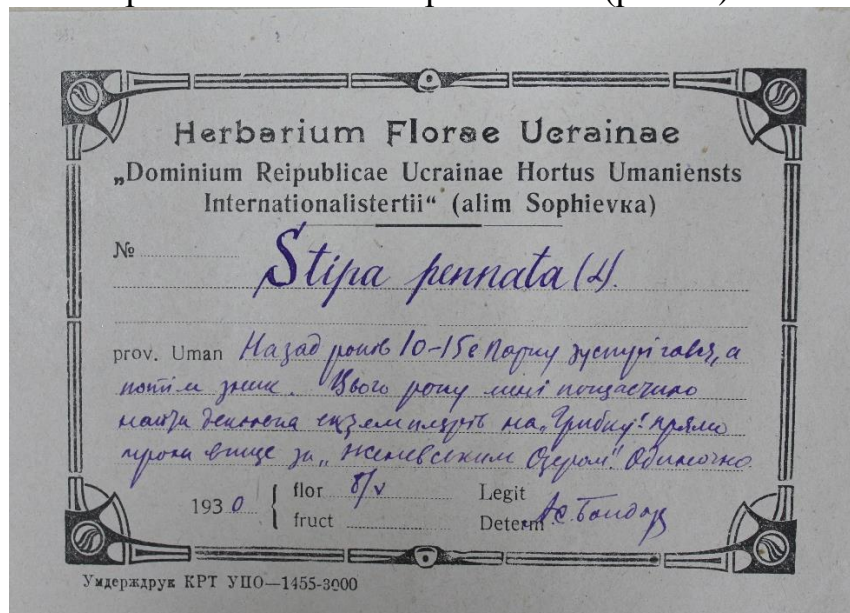 Herbarium Florae Ucrainae
„Dominium Reipublicae Ucrainae Hortus Umaniensts
Internationalistertii“ (alim Sophievка)
№
Stipa pennata (L).
prov. Uman Назад років 10-15 в парку зустрі , а
потім зник. Цього року мені пощастило
найти декілька екземплярів на „Грибку“. прямо
трохи вище за „Женевським Озером“. Одиночно
1930 flor 8/V Legit
fruct Determ Бондар
Умдерждрук КРТ УПО—1455-3000